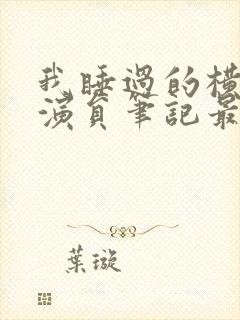 我睡過的橫
演員筆記最
葉璇